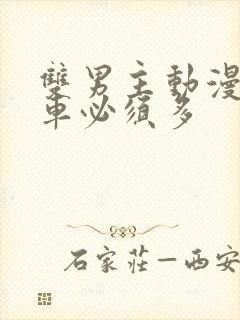 雙男主動漫
車必須多
石家莊—西安